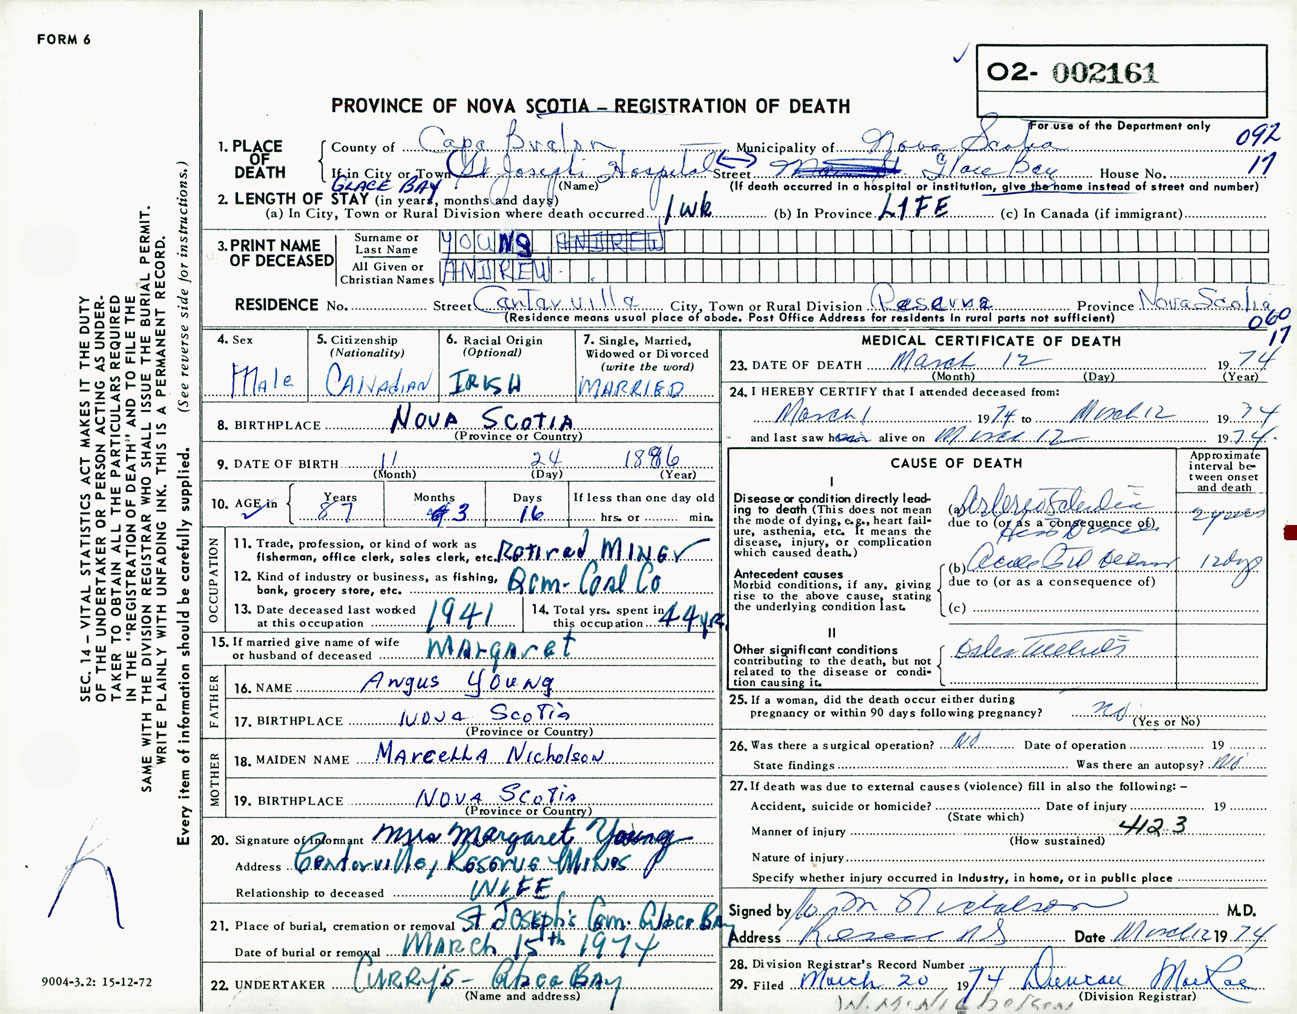 FORM 6
O2- 002161
PROVINCE OF NOVA SCOTIA – REGISTRATION OF DEATH
For use of the Department only
092
17
1. PLACE OF DEATH
County of Cape Breton Municipality of Nova Scotia
If in City or Town St Josephs Hospital Street Glace Bay House No.
GLACE BAY
(Name) (If death occurred in a hospital or institution, give the name instead of street and number)
2. LENGTH OF STAY (in years, months and days)
(a) In City, Town or Rural Division where death occurred 1 wk (b) In Province LIFE (c) In Canada (if immigrant)
3. PRINT NAME OF DECEASED
Surname or Last Name YOUNG ANDREW
All Given or Christian Names ANDREW
RESIDENCE No. Street Centerville City, Town or Rural Division Reserve Province Nova Scotia
(Residence means usual place of abode. Post Office Address for residents in rural parts not sufficient)
060
17
4. Sex
Male
5. Citizenship
(Nationality)
CANADIAN
6. Racial Origin
(Optional)
IRISH
7. Single, Married, Widowed or Divorced
(write the word)
MARRIED
8. BIRTHPLACE NOVA SCOTIA
(Province or Country)
9. DATE OF BIRTH 11 24 1886
(Month) (Day) (Year)
10. AGE in Years Months Days If less than one day old
87 3 16 hrs. or min.
OCCUPATION
11. Trade, profession, or kind of work as
fisherman, office clerk, sales clerk, etc. Retired MINER
12. Kind of industry or business, as fishing,
bank, grocery store, etc. Dom- Coal Co
13. Date deceased last worked
at this occupation 1941
14. Total yrs. spent in
this occupation 44 yrs.
15. If married give name of wife
or husband of deceased Margaret
FATHER
16. NAME Angus Young
17. BIRTHPLACE NOVA SCOTIA
(Province or Country)
MOTHER
18. MAIDEN NAME MARCELLA Nicholson
19. BIRTHPLACE NOVA SCOTIA
(Province or Country)
20. Signature of informant Mrs Margaret Young
Address Centerville, Reserve Mines
Relationship to deceased WIFE
21. Place of burial, cremation or removal St Joseph's Cem. Glace Bay
Date of burial or removal MARCH 15th 1974
22. UNDERTAKER CURRY'S - Glace BAY
(Name and address)
MEDICAL CERTIFICATE OF DEATH
23. DATE OF DEATH March 12 1974
(Month) (Day) (Year)
24. I HEREBY CERTIFY that I attended deceased from:
March 1 1974 to March 12 1974
and last saw alive on March 12 1974.
CAUSE OF DEATH
Approximate interval between onset and death
I
Disease or condition directly leading to death (This does not
mean the mode of dying, e.g., heart failure, asthenia, etc. It means the
disease, injury, or complication
which caused death.)
(a) Heart Disease 2 years
due to (or as a consequence of)
Antecedent causes
Morbid conditions, if any, giving
rise to the above cause, stating
the underlying condition last.
(b) 12 days
due to (or as a consequence of)
(c)
II
Other significant conditions
contributing to the death, but not
related to the disease or condition causing it.
25. If a woman, did the death occur either during
pregnancy or within 90 days following pregnancy? no
(Yes or No)
26. Was there a surgical operation? No Date of operation 19
State findings Was there an autopsy? No
27. If death was due to external causes (violence) fill in also the following: –
Accident, suicide or homicide? Date of injury 19
(State which)
Manner of injury 412 3
(How sustained)
Nature of injury
Specify whether injury occurred in industry, in home, or in public place
Signed by W M Nicholson M.D.
Address Reserve N.S Date March 12 1974
28. Division Registrar's Record Number
29. Filed March 20 1974 Duncan MacRae
(Division Registrar)
W. M. Nicholson
SEC. 14 – VITAL STATISTICS ACT MAKES IT THE DUTY
OF THE UNDERTAKER OR PERSON ACTING AS UNDERTAKER TO OBTAIN ALL THE PARTICULARS REQUIRED
IN THE "REGISTRATION OF DEATH" AND TO FILE THE
SAME WITH THE DIVISION REGISTRAR WHO SHALL ISSUE THE BURIAL PERMIT.
WRITE PLAINLY WITH UNFADING INK. THIS IS A PERMANENT RECORD.
Every item of information should be carefully supplied. (See reverse side for instructions.)
9004-3.2: 15-12-72